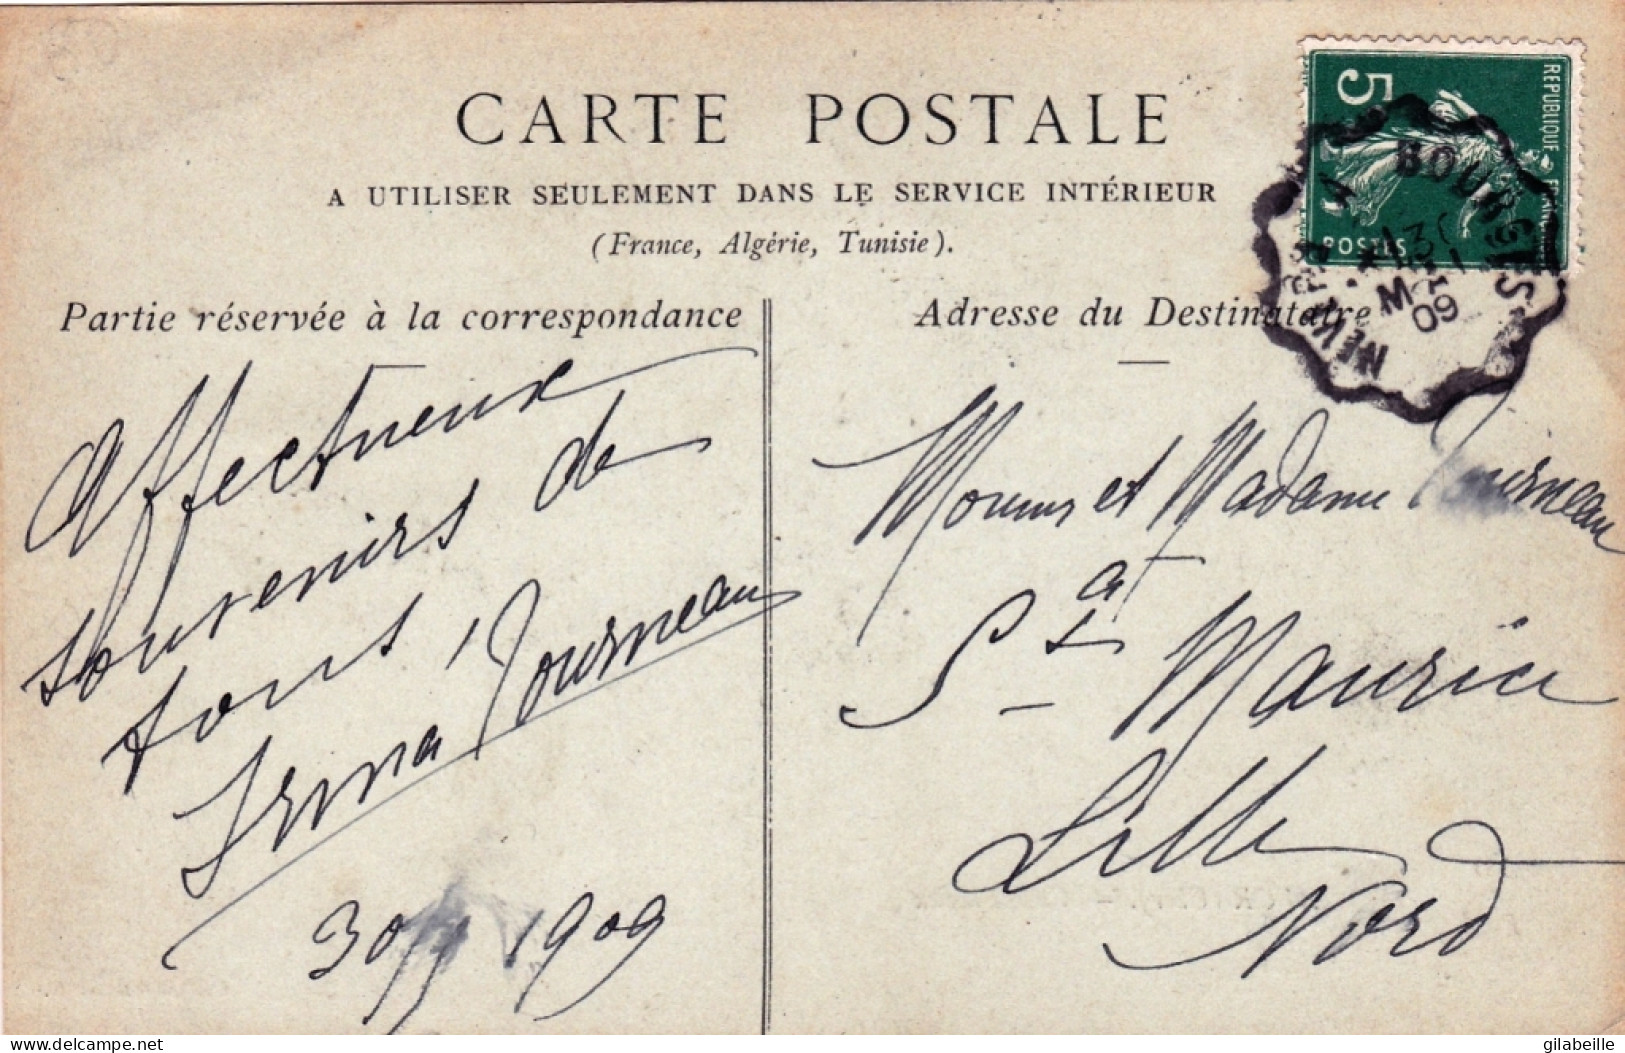 CARTE POSTALE
A UTILISER SEULEMENT DANS LE SERVICE INTÉRIEUR
(France, Algérie, Tunisie).
Partie réservée à la correspondance
Affectueux
souvenirs de
tous
Irma Tourneau
1909
Adresse du Destinataire
et Madame Tourneau
St Maurice
Lille
Nord
5
REPUBLIQUE FRANÇAISE
POSTES
BOURGES
09
delcampe.net
gilabeille